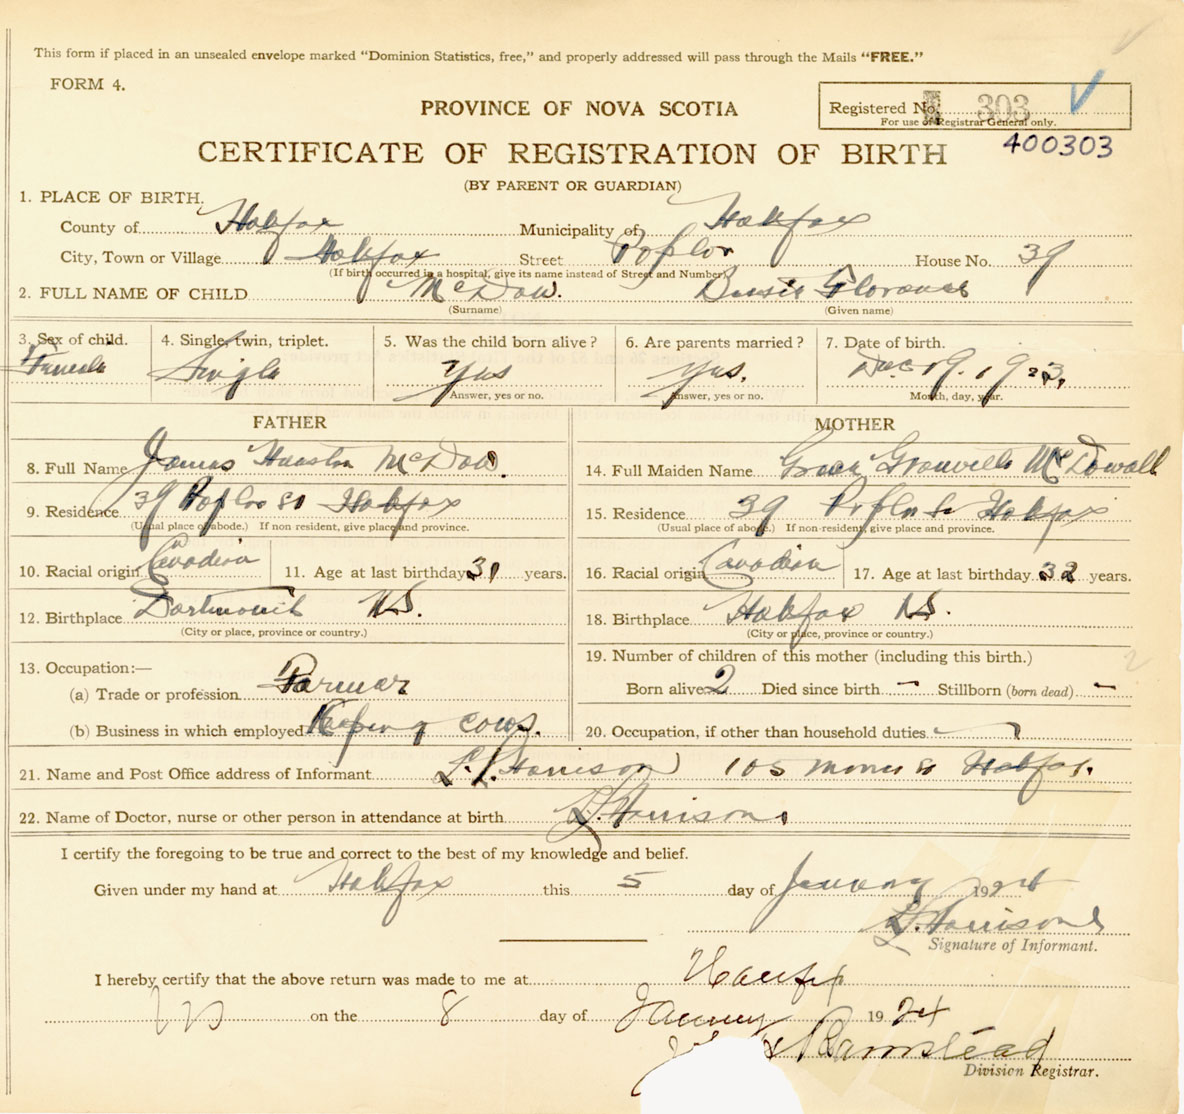 This form if placed in an unsealed envelope marked "Dominion Statistics, free," and properly addressed will pass through the Mails "FREE."
FORM 4.
Registered No. 303
For use of Registrar General only.
PROVINCE OF NOVA SCOTIA
400303
CERTIFICATE OF REGISTRATION OF BIRTH
(BY PARENT OR GUARDIAN)
1. PLACE OF BIRTH.
County of Halifax Municipality of Halifax
City, Town or Village Halifax Street Poplar House No. 39
(If birth occurred in a hospital, give its name instead of Street and Number)
2. FULL NAME OF CHILD McDow. Florence
(Surname) (Given name)
3. Sex of child. 4. Single, twin, triplet. 5. Was the child born alive? 6. Are parents married? 7. Date of birth.
Female Single Yes Yes. Dec 19. 1923.
Answer, yes or no. Answer, yes or no. Month, day, year.
FATHER MOTHER
8. Full Name James McDow. 14. Full Maiden Name Granville McDowall
9. Residence 39 Poplar St Halifax 15. Residence 39 Poplar St Halifax
(Usual place of abode.) If non resident, give place and province. (Usual place of abode.) If non-resident, give place and province.
10. Racial origin Canadian 11. Age at last birthday 31 years. 16. Racial origin Canadian 17. Age at last birthday 32 years.
12. Birthplace Dartmouth N.S. 18. Birthplace Halifax N.S.
(City or place, province or country.) (City or place, province or country.)
13. Occupation:— 19. Number of children of this mother (including this birth.)
(a) Trade or profession Farmer Born alive 2 Died since birth – Stillborn (born dead) –
(b) Business in which employed Keeping cows. 20. Occupation, if other than household duties
21. Name and Post Office address of Informant L. L. Harrison 105 St Halifax.
22. Name of Doctor, nurse or other person in attendance at birth L. Harrison
I certify the foregoing to be true and correct to the best of my knowledge and belief.
Given under my hand at Halifax this 5 day of January 1924
L. Harrison
Signature of Informant.
I hereby certify that the above return was made to me at Halifax
NS on the 8 day of January 1924
Division Registrar.